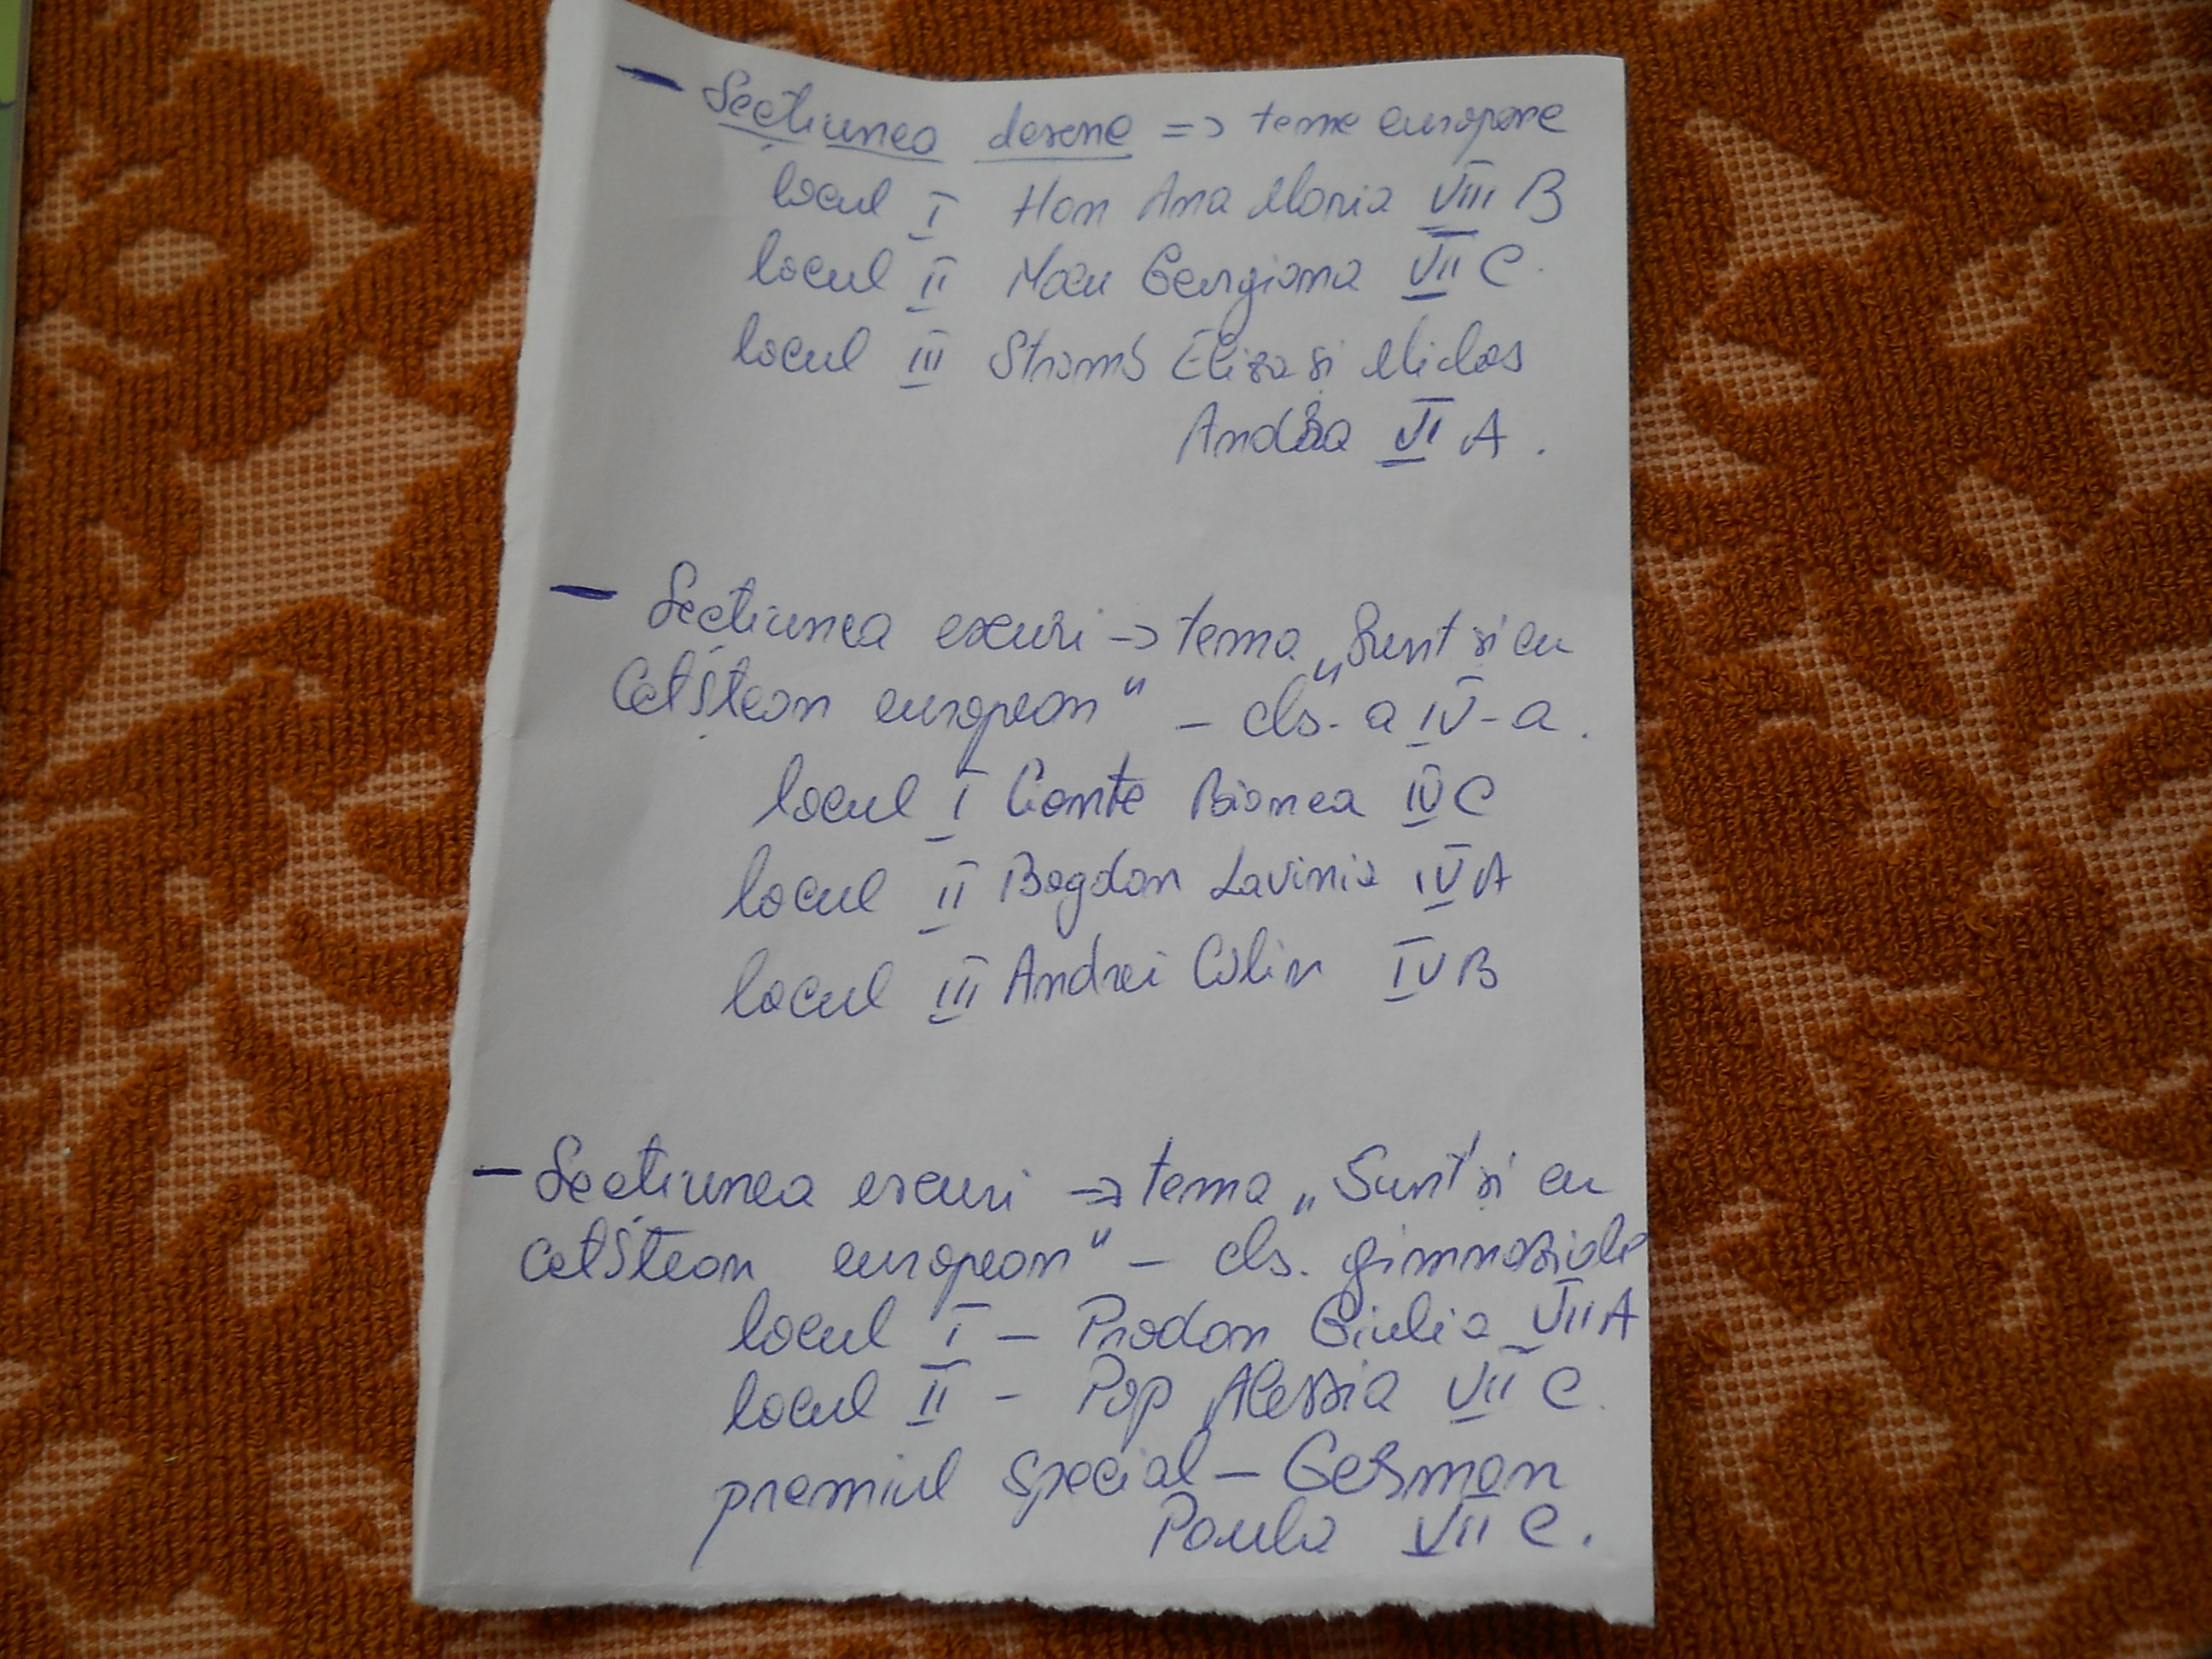 – Secțiunea desene => teme europene
locul I Han Ana Maria VIII B
locul II Nacu Georgiana VII C.
locul III Stramb Eliza și Miclos
Andra VI A.
– Secțiunea eseuri -> tema „Sunt și eu
cetățean european" – cls. a IV-a.
locul I Conte Bianca IV C
locul II Bogdan Lavinia IV A
locul III Andrei Călin IV B
– Secțiunea eseuri => tema „Sunt și eu
cetățean european" – cls. gimnaziale
locul I – Prodan Giulia VII A
locul II – Pop Alessia VII C.
premiul special – German
Paula VII C.